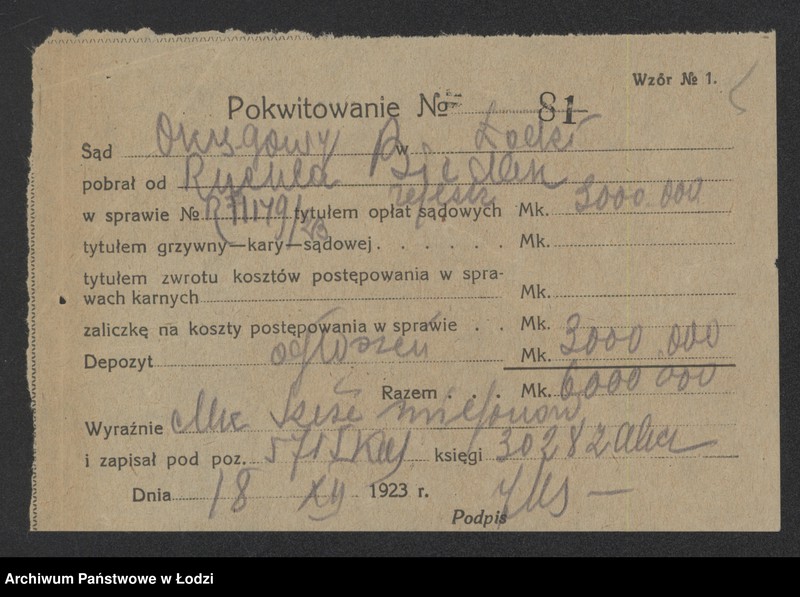 Wzór № 1.
Pokwitowanie № 81
Sąd Okręgowy w Łodzi
pobrał od
w sprawie № tytułem opłat sądowych Mk. 3000.000
tytułem grzywny—kary—sądowej . . . . . . Mk.
tytułem zwrotu kosztów postępowania w spra-
wach karnych Mk.
zaliczkę na koszty postępowania w sprawie . . Mk.
Depozyt ogłoszeń Mk. 3000.000
Razem . . . Mk. 6000 000
Wyraźnie Mk sześć miljonów
i zapisał pod poz. księgi
Dnia 18 XII 1923 r.
Podpis
Archiwum Państwowe w Łodzi